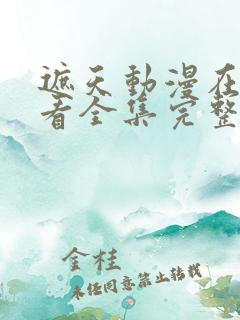 遮天動漫在
看全集完整
金桂
未经同意禁止转载